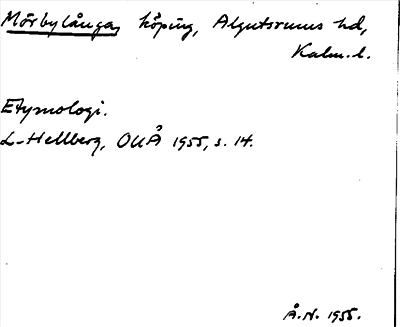 Mörbylånga, köping, Algutsrums hd,
Kalm. l.
Etymologi.
L. Hellberg, OUÅ 1955, s. 14.
Å.N. 1955.